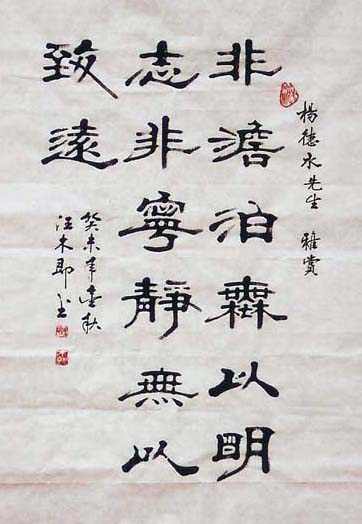 楊德水先生 雅賞
非澹泊無以明
志非寧靜無以
致遠
癸未年
秋
汪木郎書